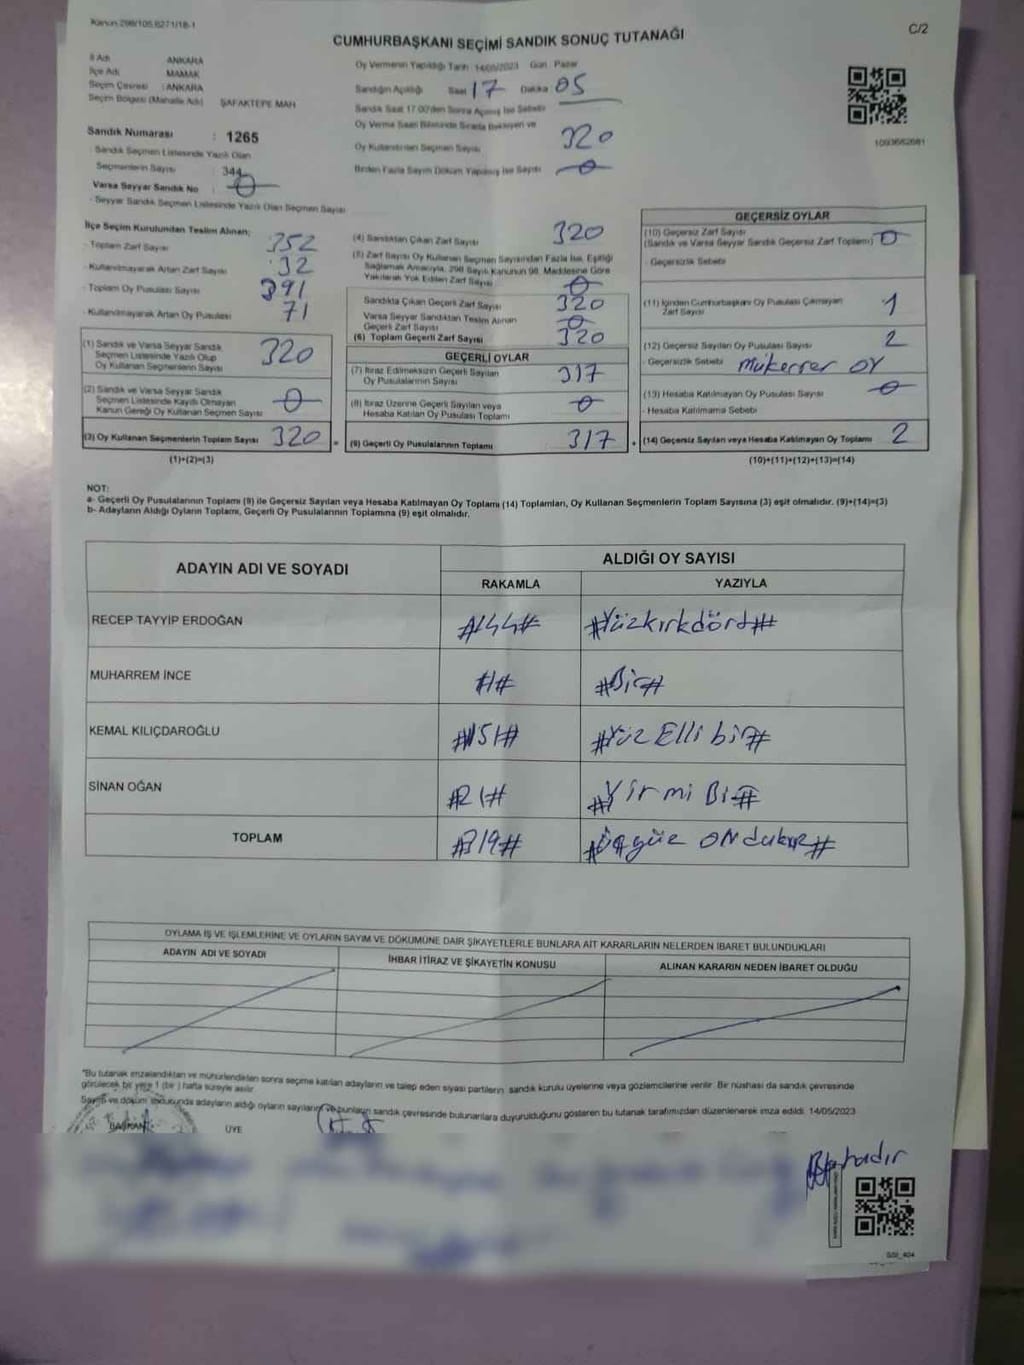 Kanun 298/105,6271/18-1
C/2
CUMHURBAŞKANI SEÇİMİ SANDIK SONUÇ TUTANAĞI
İl Adı ANKARA
İlçe Adı MAMAK
Seçim Çevresi : ANKARA
Seçim Bölgesi (Mahalle Adı) ŞAFAKTEPE MAH
Sandık Numarası : 1265
- Sandık Seçmen Listesinde Yazılı Olan
Seçmenlerin Sayısı 344
Varsa Seyyar Sandık No : 0
- Seyyar Sandık Seçmen Listesinde Yazılı Olan Seçmen Sayısı
Oy Vermenin Yapıldığı Tarih 14/05/2023 Gün Pazar
Sandığın Açıldığı Saat 17 Dakika 05
Sandık Saat 17.00'den Sonra Açılmış İse Sebebi
Oy Verme Saati Bitiminde Sırada Bekleyen ve
Oy Kullandırılan Seçmen Sayısı 320
Birden Fazla Sayım Döküm Yapılmış İse Sayısı 0
1093662681
İlçe Seçim Kurulundan Teslim Alınan;
- Toplam Zarf Sayısı 352
- Kullanılmayarak Artan Zarf Sayısı 32
- Toplam Oy Pusulası Sayısı 391
- Kullanılmayarak Artan Oy Pusulası 71
(1) Sandık ve Varsa Seyyar Sandık
Seçmen Listesinde Yazılı Olup
Oy Kullanan Seçmenlerin Sayısı 320
(2) Sandık ve Varsa Seyyar Sandık
Seçmen Listesinde Kayıtlı Olmayan
Kanun Gereği Oy Kullanan Seçmen Sayısı 0
(3) Oy Kullanan Seçmenlerin Toplam Sayısı 320 =
(1)+(2)=(3)
(4) Sandıktan Çıkan Zarf Sayısı 320
(5) Zarf Sayısı Oy Kullanan Seçmen Sayısından Fazla İse, Eşitliği
Sağlamak Amacıyla, 298 Sayılı Kanunun 98. Maddesine Göre
Yakılarak Yok Edilen Zarf Sayısı 0
Sandıkta Çıkan Geçerli Zarf Sayısı 320
Varsa Seyyar Sandıktan Teslim Alınan
Geçerli Zarf Sayısı 0
(6) Toplam Geçerli Zarf Sayısı 320
GEÇERLİ OYLAR
(7) İtiraz Edilmeksizin Geçerli Sayılan
Oy Pusulalarının Sayısı 317
(8) İtiraz Üzerine Geçerli Sayılan veya
Hesaba Katılan Oy Pusulası Toplamı 0
(9) Geçerli Oy Pusulalarının Toplamı 317 +
GEÇERSİZ OYLAR
(10) Geçersiz Zarf Sayısı
(Sandık ve Varsa Seyyar Sandık Geçersiz Zarf Toplamı) 0
- Geçersizlik Sebebi
(11) İçinden Cumhurbaşkanı Oy Pusulası Çıkmayan
Zarf Sayısı 1
(12) Geçersiz Sayılan Oy Pusulası Sayısı 2
- Geçersizlik Sebebi Mükerrer OY
(13) Hesaba Katılmayan Oy Pusulası Sayısı 0
- Hesaba Katılmama Sebebi
(14) Geçersiz Sayılan veya Hesaba Katılmayan Oy Toplamı 2
(10)+(11)+(12)+(13)=(14)
NOT:
a- Geçerli Oy Pusulalarının Toplamı (9) ile Geçersiz Sayılan veya Hesaba Katılmayan Oy Toplamı (14) Toplamları, Oy Kullanan Seçmenlerin Toplam Sayısına (3) eşit olmalıdır. (9)+(14)=(3)
b- Adayların Aldığı Oyların Toplamı, Geçerli Oy Pusulalarının Toplamına (9) eşit olmalıdır.
ADAYIN ADI VE SOYADI
ALDIĞI OY SAYISI
RAKAMLA YAZIYLA
RECEP TAYYİP ERDOĞAN #144# #Yüzkırkdört#
MUHARREM İNCE #1# #Bir#
KEMAL KILIÇDAROĞLU #151# #Yüz Elli bir#
SİNAN OĞAN #21# #Yirmi Bir#
TOPLAM #319# #Üçyüz ONdokuz#
OYLAMA İŞ VE İŞLEMLERİNE VE OYLARIN SAYIM VE DÖKÜMÜNE DAİR ŞİKAYETLERLE BUNLARA AİT KARARLARIN NELERDEN İBARET BULUNDUKLARI
ADAYIN ADI VE SOYADI
İHBAR İTİRAZ VE ŞİKAYETİN KONUSU
ALINAN KARARIN NEDEN İBARET OLDUĞU
"Bu tutanak imzalandıktan ve mühürlendikten sonra seçime katılan adayların ve talep eden siyasi partilerin sandık kurulu üyelerine veya gözlemcilerine verilir. Bir nüshası da sandık çevresinde
görülecek bir yere 1 (bir) hafta süreyle asılır.
Sayım ve döküm sonucunda adayların aldığı oyların sayılarını ve bunların sandık çevresinde bulunanlara duyurulduğunu gösteren bu tutanak tarafımızdan düzenlenerek imza edildi. 14/05/2023
BAŞKAN
ÜYE